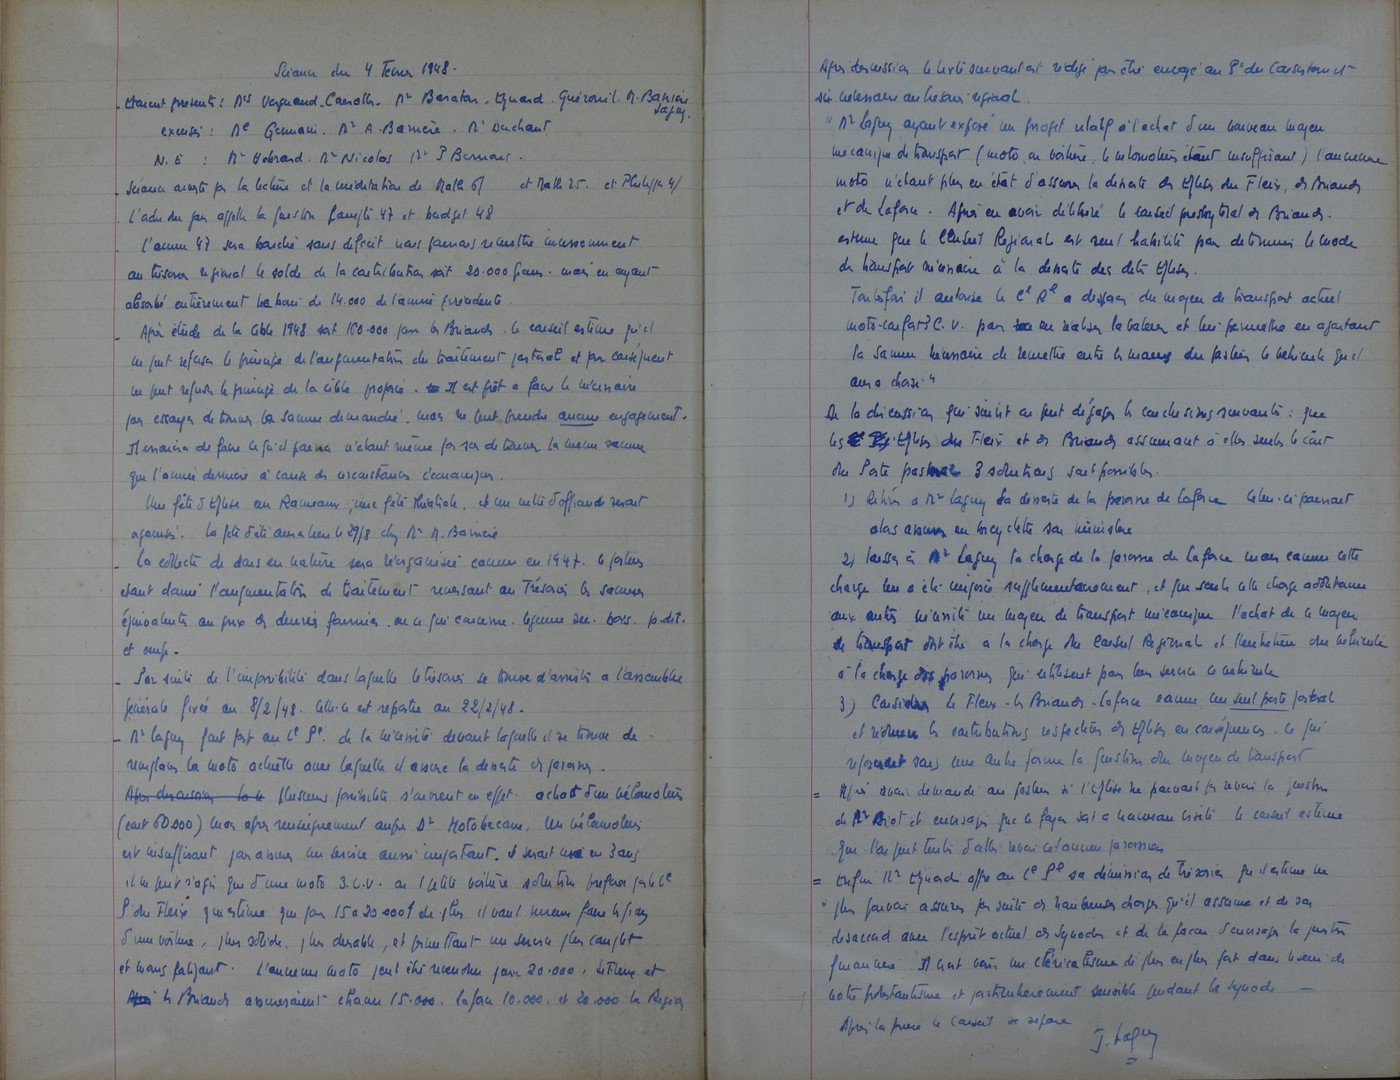 Séance du 4 Février 1948.
Etaient présents : Mrs Vergnaud. Canolle. Mr Baraton. Eynard. Guézonil. M. Barrière
Lagny.
excusés : Me Germain. Mr A. Barrière. Mr Duchant
N. E : Mr Hebrard. Mr Nicolas Mr P Bernard.
Séance ouverte par la lecture et la méditation de Math 6/ et Math 25. et Philipp 4/
L'ordre du jour appelle la question Compte 47 et budget 48
L'année 47 sera bouclée sans déficit nous pourrons remettre incessamment
au trésorier régional le solde de la contribution soit 20.000 francs. mais en ayant
absorbé entièrement le boni de 14.000 de l'année précédente.
Après étude de la cible 1948 soit 160.000 pour les Briands. le conseil estime qu'il
ne peut refuser le principe de l'augmentation du traitement pastoral et par conséquent
ne peut refuser le principe de la cible proposée. Il est prêt à faire le nécessaire
pour essayer de trouver la somme demandée. mais ne peut prendre aucun engagement.
Il essaiera de faire ce qu'il pourra n'étant même pas sûr de trouver la même somme
que l'année dernière à cause des circonstances économiques.
Une fête d'Eglise aux Rameaux, une fête théâtrale, et un culte d'offrande seront
organisés. la fête d'été aura lieu le 29/8 chez Mr M. Barrière
La collecte de dons en nature sera réorganisée comme en 1947. le pasteur
étant donné l'augmentation de traitement reversant au Trésorier les sommes
équivalentes au prix des denrées fournies. en ce qui concerne. légume sec. bois. p. de t.
et oeufs.
Par suite de l'impossibilité dans laquelle le trésorier se trouve d'assister à l'assemblée
générale fixée au 8/2/48. Celle-ci est reportée au 22/2/48.
Mr Lagny fait part au Cl Pl. de la nécessité devant laquelle il se trouve de
remplacer la moto actuelle avec laquelle il assure la desserte des paroisses.
Après discussion plusieurs possibilités s'ouvrent en effet. achat d'un vélomoteur
(coût 60.000) mais après renseignement auprès Mr Motobecane, un vélomoteur
est insuffisant pour assurer un service aussi important. il serait usé en 3 ans
il ne peut s'agir que d'une moto 3.C.V. ou 1 petite voiture solution préférée par le Cl
P du Fleix qui estime que pour 15 à 20.000f de plus il vaut mieux faire les frais
d'une voiture, plus solide, plus durable, et permettant un service plus complet
et moins fatigant. L'ancienne moto peut être revendue pour 20.000. Le Fleix et
les Briands assureraient chacun 15.000. Laforce 10.000. et 20.000 la Région
Après discussion le texte suivant est rédigé pour être envoyé au Pt du Consistoire et
si nécessaire au trésorier régional.
" Mr Lagny ayant exposé un projet relatif à l'achat d'un nouveau moyen
mécanique de transport (moto, ou voiture, le vélomoteur étant insuffisant) l'ancienne
moto n'étant plus en état d'assurer la desserte des Eglises du Fleix, des Briands
et de Laforce. Après en avoir délibéré le conseil presbytéral des Briands.
estime que le Conseil Régional est seul habilité pour déterminer le mode
de transport nécessaire à la desserte des dites Eglises.
Toutefois il autorise le Cl Rl à disposer du moyen de transport actuel
moto-confort 3 C.V. pour en réaliser la valeur et lui permettre en ajoutant
la somme nécessaire de remettre entre les mains du pasteur le véhicule qu'il
aura choisi"
De la discussion qui suivit on peut dégager les conclusions suivantes : que
les Eglises du Fleix et des Briands assumant à elles seules le coût
du Poste pastoral 3 solutions sont possibles.
1) Retirer à Mr Lagny la desserte de la paroisse de Laforce celui-ci pouvant
alors assurer en bicyclette son ministère
2) laisser à Mr Lagny la charge de la paroisse de Laforce mais comme cette
charge lui a été imposée supplémentairement, et que seule cette charge additionnée
aux autres nécessite un moyen de transport mécanique l'achat de ce moyen
de transport doit être à la charge du Conseil Régional et l'entretien du véhicule
à la charge des paroisses qui utilisent pour leur service ce véhicule
3) Considérer le Fleix - les Briands - Laforce comme un seul poste pastoral
et réviser les contributions respectives des Eglises en conséquences. ce qui
reposerait sous une autre forme la question du moyen de transport
= Après avoir demandé au pasteur si l'Eglise ne pouvait pas revoir la question
de Mr Biot et envisager que le foyer soit à nouveau visité le conseil estime
que l'on peut tenter d'aller revoir cet ancien paroissien
= Enfin Mr Eynard offre au Cl Pl sa démission de trésorier qu'il estime ne
plus pouvoir assurer par suite des nombreuses charges qu'il assume et de son
désaccord avec l'esprit actuel des Synodes et de la façon d'envisager la question
financière. Il croit voir un cléricalisme de plus en plus fort dans le sein de
notre protestantisme et particulièrement sensible pendant les Synodes
Après la prière le Conseil se sépare
J. Lagny